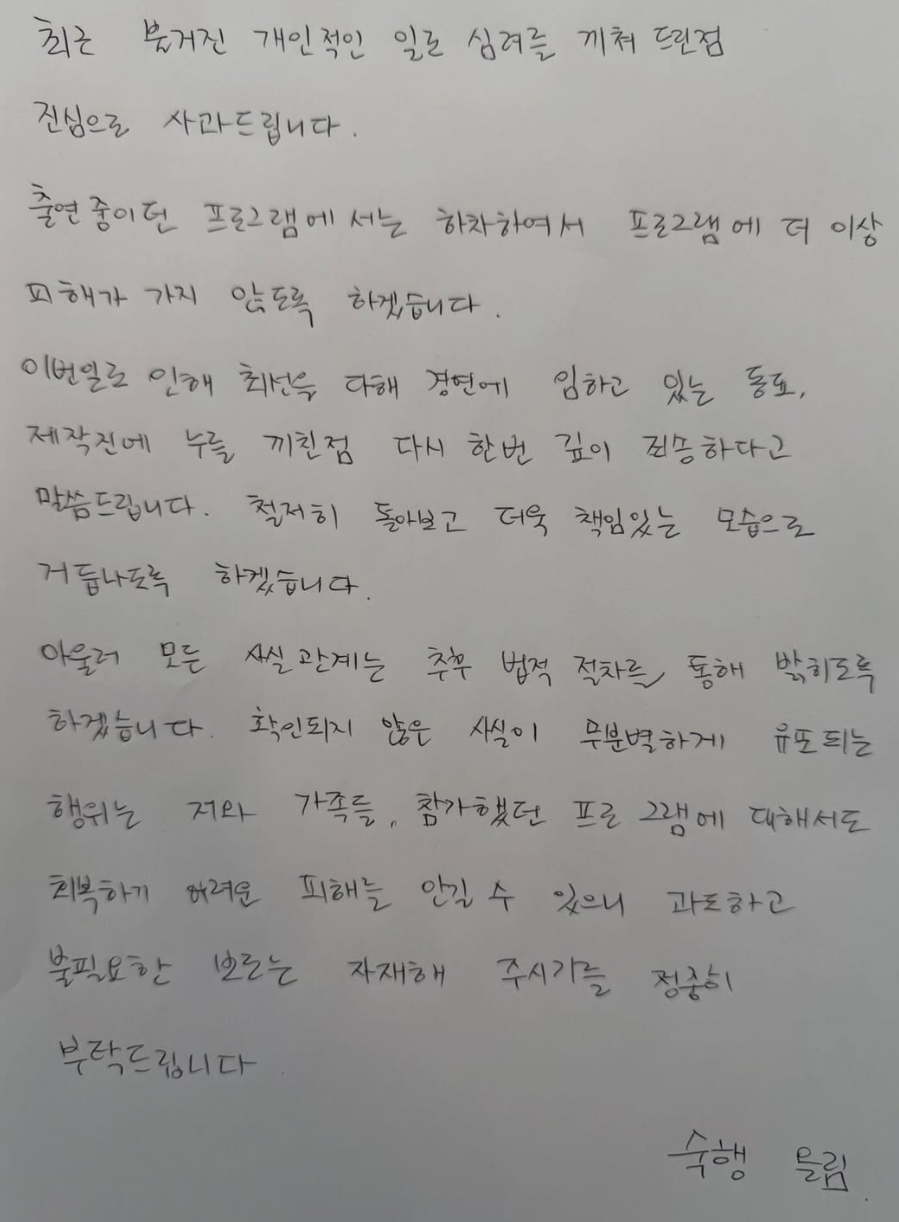 최근 불거진 개인적인 일로 심려를 끼쳐 드린점
진심으로 사과드립니다.
출연중이던 프로그램에서는 하차하여서 프로그램에 더 이상
피해가 가지 않도록 하겠습니다.
이번일로 인해 최선을 다해 경연에 임하고 있는 동료,
제작진에 누를 끼친점 다시 한번 깊이 죄송하다고
말씀드립니다. 철저히 돌아보고 더욱 책임있는 모습으로
거듭나도록 하겠습니다.
아울러 모든 사실관계는 추후 법적 절차를 통해 밝히도록
하겠습니다. 확인되지 않은 사실이 무분별하게 유포되는
행위는 저와 가족들, 참가했던 프로그램에 대해서도
회복하기 어려운 피해를 안길 수 있으니 과도하고
불필요한 보도는 자재해 주시기를 정중히
부탁드립니다
숙행 올림.